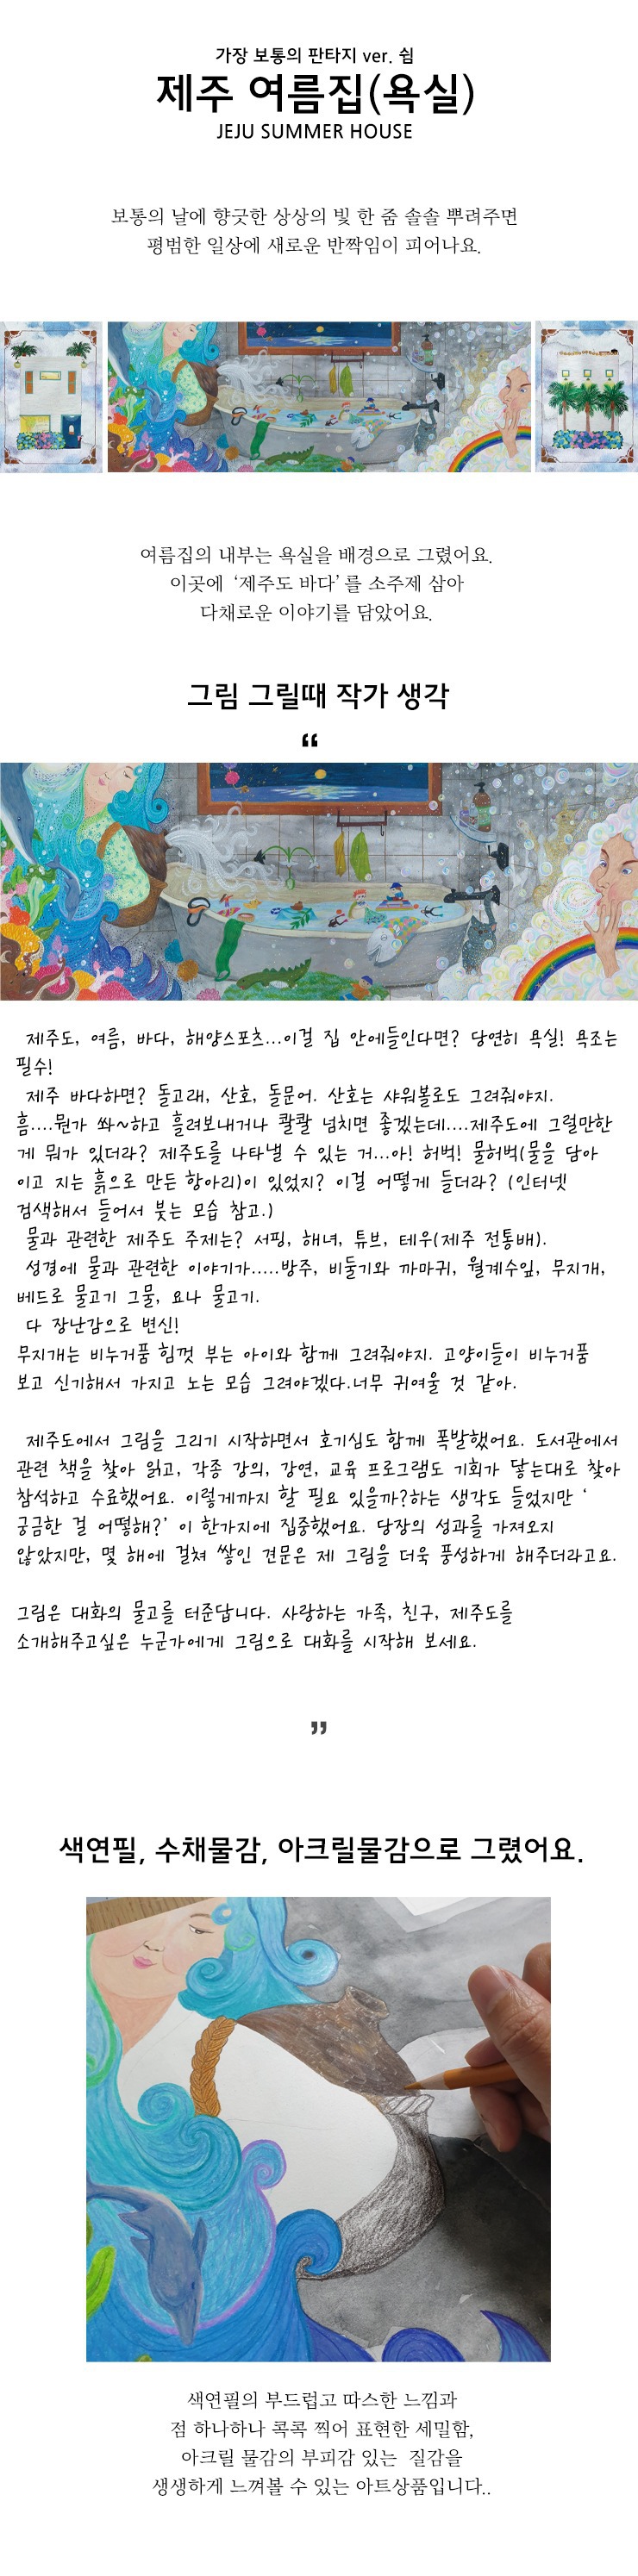 가장 보통의 판타지 ver. 쉼
제주 여름집(욕실)
JEJU SUMMER HOUSE
보통의 날에 향긋한 상상의 빛 한 줌 솔솔 뿌려주면
평범한 일상에 새로운 반짝임이 피어나요.
여름집의 내부는 욕실을 배경으로 그렸어요.
이곳에 ‘제주도 바다’를 소주제 삼아
다채로운 이야기를 담았어요.
그림 그릴때 작가 생각
“
제주도, 여름, 바다, 해양스포츠...이걸 집 안에들인다면? 당연히 욕실! 욕조는
필수!
제주 바다하면? 돌고래, 산호, 돌문어. 산호는 샤워볼로도 그려줘야지.
흠....뭔가 쏴~하고 흘려보내거나 콸콸 넘치면 좋겠는데....제주도에 그럴만한
게 뭐가 있더라? 제주도를 나타낼 수 있는 거...아! 허벅! 물허벅(물을 담아
이고 지는 흙으로 만든 항아리)이 있었지? 이걸 어떻게 들더라? (인터넷
검색해서 들어서 붓는 모습 참고.)
물과 관련한 제주도 주제는? 서핑, 해녀, 튜브, 테우(제주 전통배).
성경에 물과 관련한 이야기가.....방주, 비둘기와 까마귀, 월계수잎, 무지개,
베드로 물고기 그물, 요나 물고기.
다 장난감으로 변신!
무지개는 비누거품 힘껏 부는 아이와 함께 그려줘야지. 고양이들이 비누거품
보고 신기해서 가지고 노는 모습 그려야겠다.너무 귀여울 것 같아.
제주도에서 그림을 그리기 시작하면서 호기심도 함께 폭발했어요. 도서관에서
관련 책을 찾아 읽고, 각종 강의, 강연, 교육 프로그램도 기회가 닿는대로 찾아
참석하고 수료했어요. 이렇게까지 할 필요 있을까?하는 생각도 들었지만 ‘
궁금한 걸 어떻해?’ 이 한가지에 집중했어요. 당장의 성과를 가져오지
않았지만, 몇 해에 걸쳐 쌓인 견문은 제 그림을 더욱 풍성하게 해주더라고요.
그림은 대화의 물고를 터준답니다. 사랑하는 가족, 친구, 제주도를
소개해주고싶은 누군가에게 그림으로 대화를 시작해 보세요.
”
색연필, 수채물감, 아크릴물감으로 그렸어요.
색연필의 부드럽고 따스한 느낌과
점 하나하나 콕콕 찍어 표현한 세밀함,
아크릴 물감의 부피감 있는 질감을
생생하게 느껴볼 수 있는 아트상품입니다..